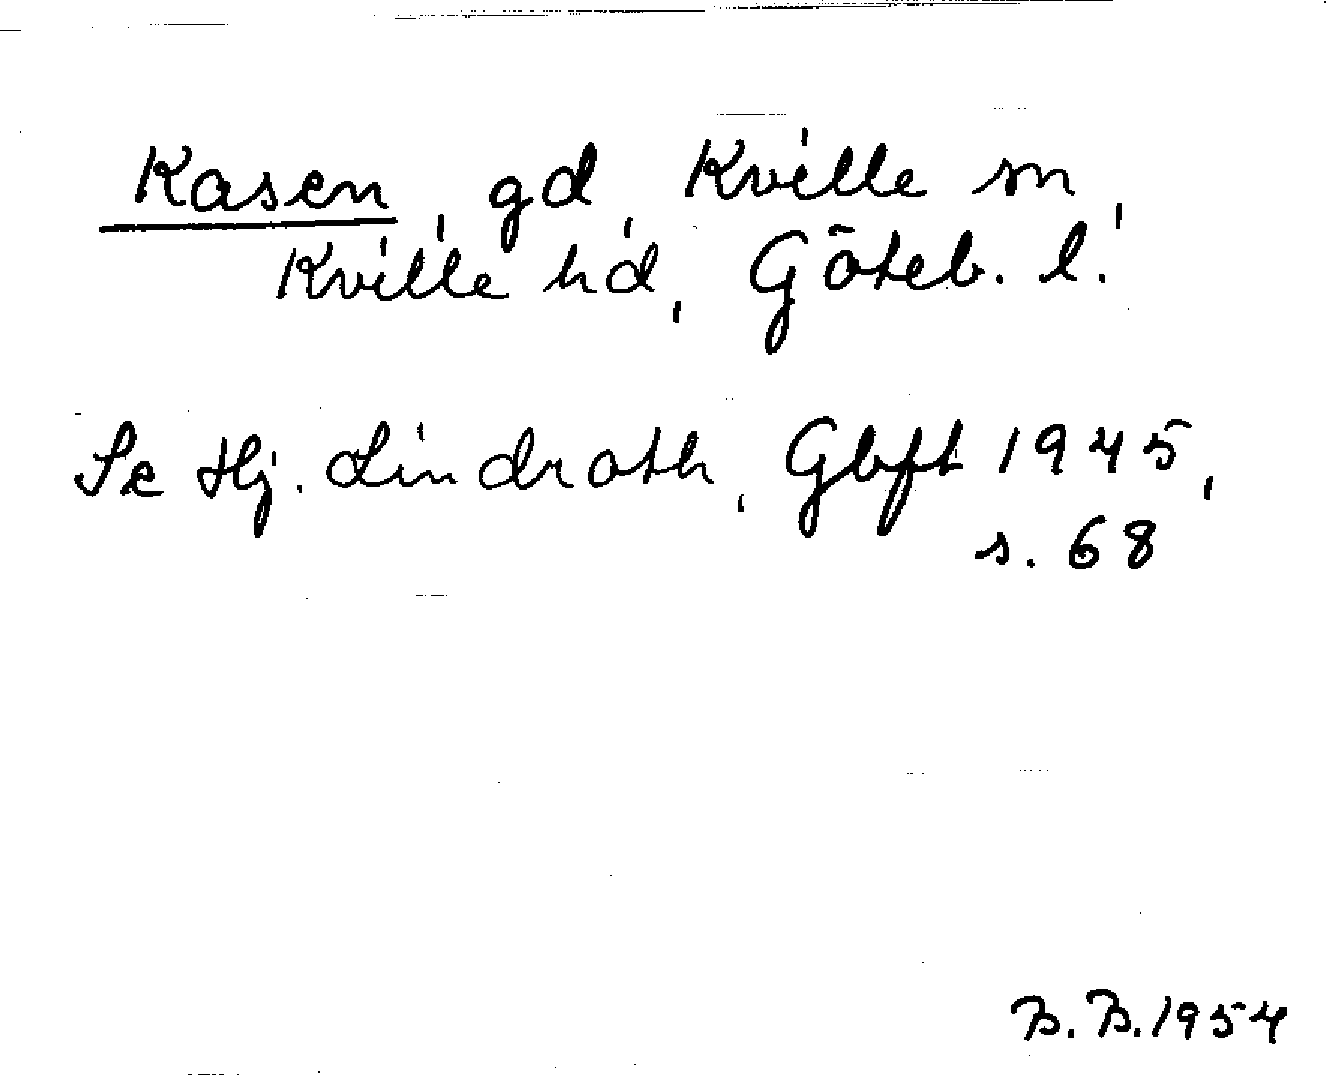 Kasen, gd, Kville sn,
Kville hd, Göteb. l.
Se Hj. Lindroth, Gbft 1945,
s. 68
B. B. 1954